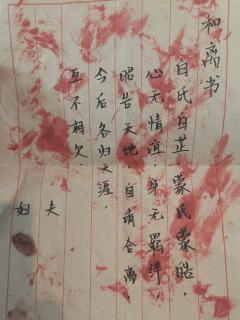 和离书
吕氏吕芷,蒙氏蒙皓,
心无情谊,身无羁绊,
昭告天地,自请合离,
今后各归天涯,
互不相欠.
夫
妇